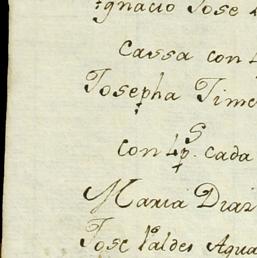 Ignacio Jose
Cassa con 4
Josepha Time
con 4 p.s cada
Maria Diaz
Jose Valdes Agua